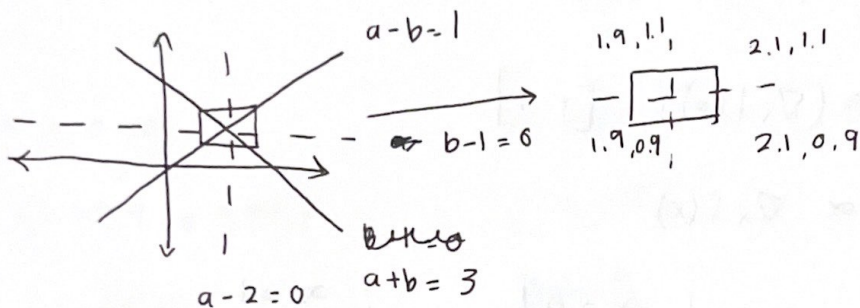 a-b=1
1.9,1.1,
2.1,1.1
b-1=0
1.9,0.9,
2.1,0,9
a+b= 3
a-2=0